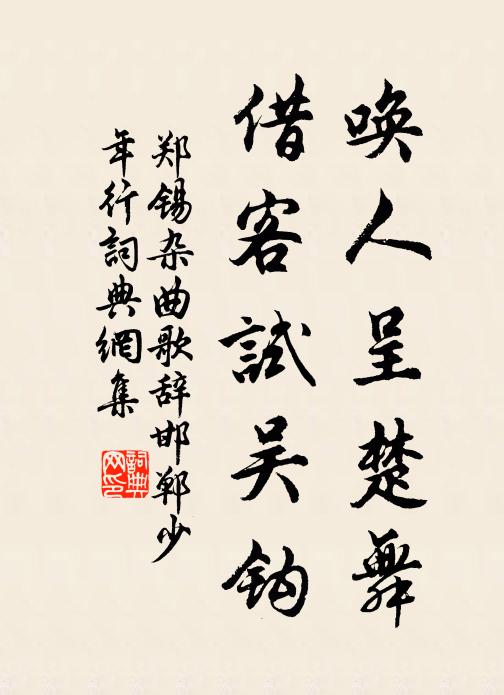 唤人呈楚舞
借客試吴钩
郑锡杂曲歌辞邯郸少
年行詞典網集
詞典
网印